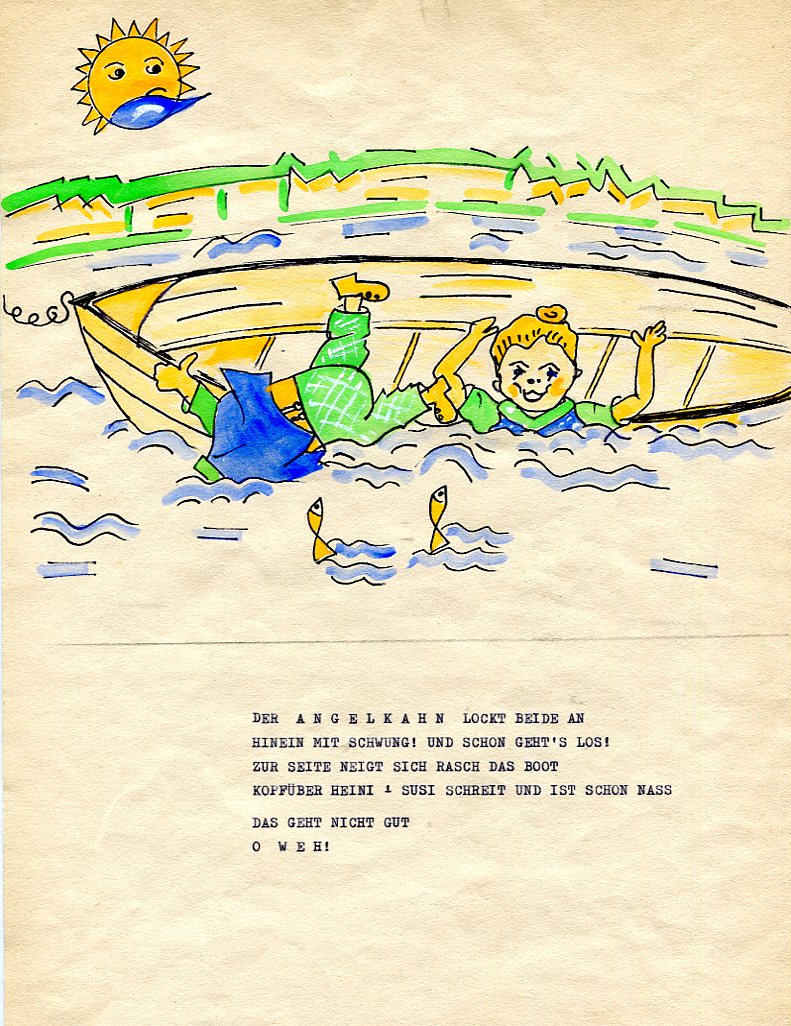 DER A N G E L K A H N LOCKT BEIDE AN
HINEIN MIT SCHWUNG! UND SCHON GEHT'S LOS!
ZUR SEITE NEIGT SICH RASCH DAS BOOT
KOPFÜBER HEINI - SUSI SCHREIT UND IST SCHON NASS
DAS GEHT NICHT GUT
O W E H!